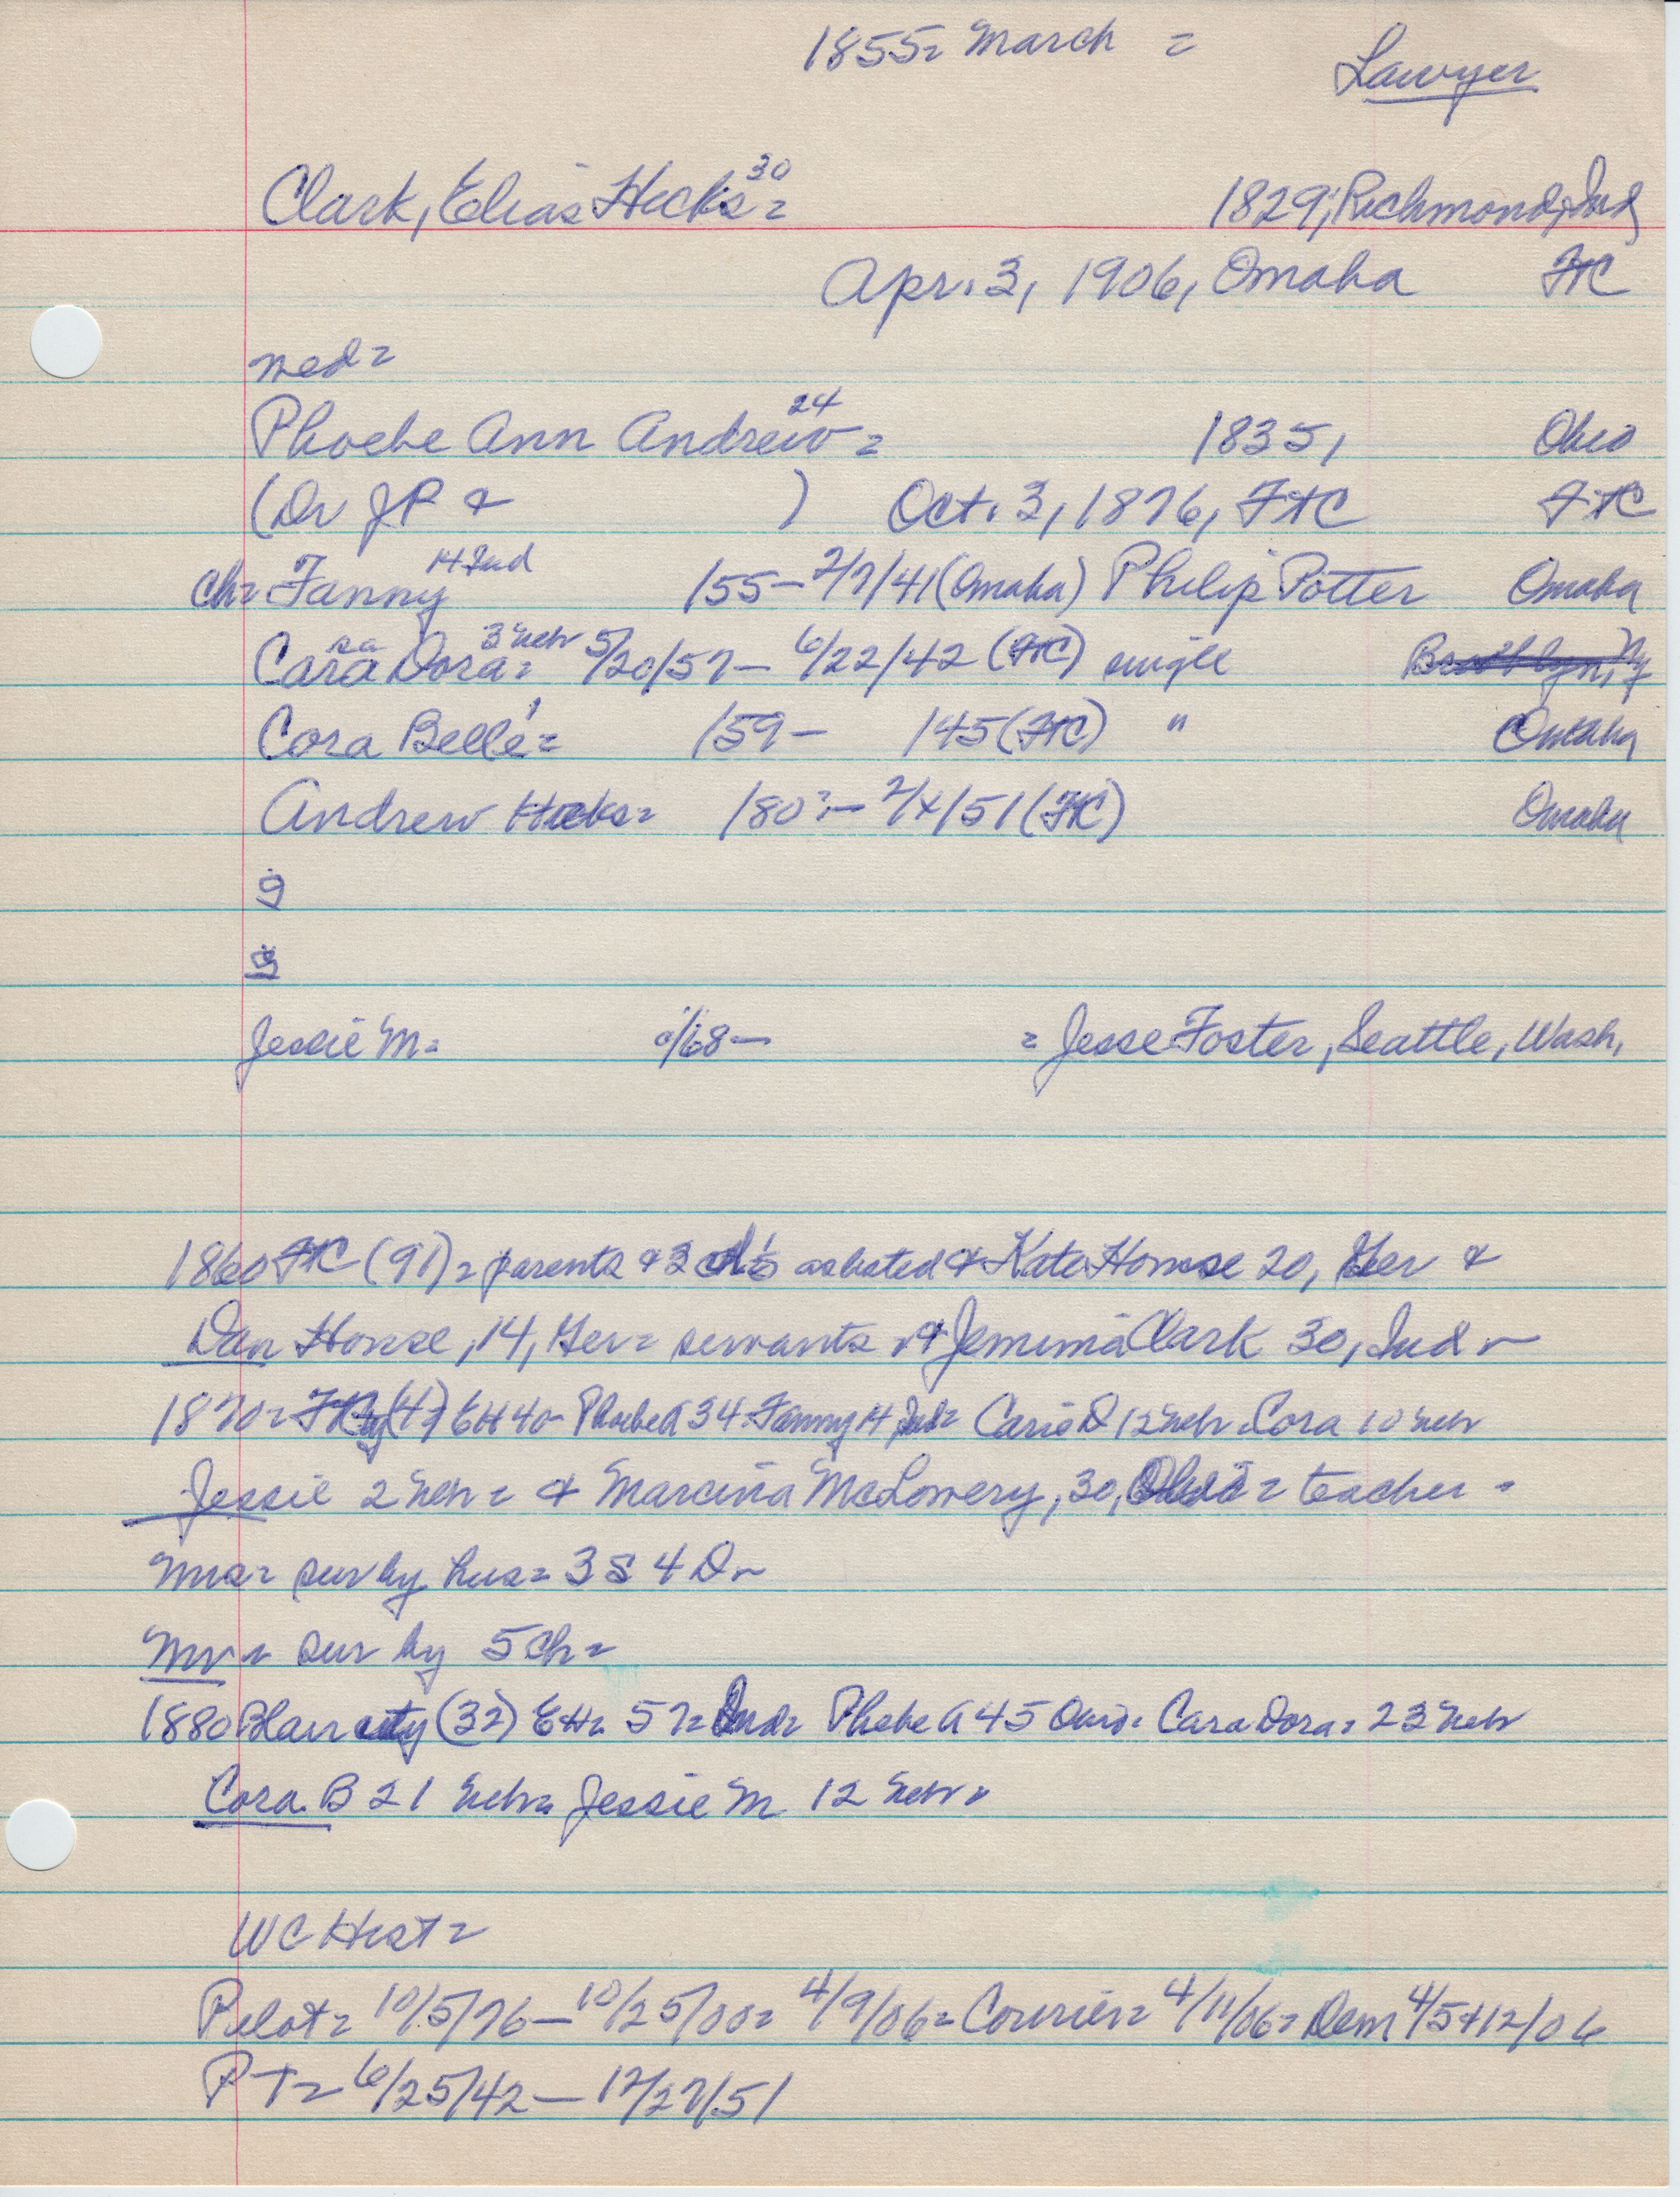 1855= March =
Lawyer
Clark, Elias Hicks 30 = 1829; Richmond, Ind
Apr. 3, 1906, Omaha FtC
med =
Phoebe Ann Andrew 24 = 1835, Ohio
(Dr JP & ) Oct. 3, 1876, FtC FtC
ch= Fanny 14 Ind /55- 2/7/41 (Omaha) Philip Potter Omaha
Cara Dora= 3 Nebr 5/20/57- 6/22/42 (FtC) single
Cora Belle 1 = /59- /45 (FtC) " Omaha
Andrew Hicks= /80?- /51 (FtC) Omaha
Jessie M= /68- = Jesse Foster, Seattle, Wash.
1860 FtC (91)= parents & 3 ch's as listed & Kate House 20, Ger &
Dan House, 14, Ger= servants & Jemima Clark 30, Ind -
1870= EH 40- Phoebe A 34 Fanny 14 Ind= Carie D 12 Nebr Cora 10 Nebr
Jessie 2 Nebr= & Marcina McLowery, 30, Ohio= teacher -
Mrs= sur by hus= 3 S 4 D-
Mr= sur by 5 ch=
1880 Blair city (32) EH= 52= Ind= Phebe A 45 Ohio= Cara Dora= 23 Nebr
Cora. B 21 Nebr= Jessie M 12 Nebr=
WC Hist=
Pilot= 10/5/76- 10/25/00= 4/9/06= Courier= 4/11/06= Dem 4/5+12/06
PT= 6/25/42- 12/27/51